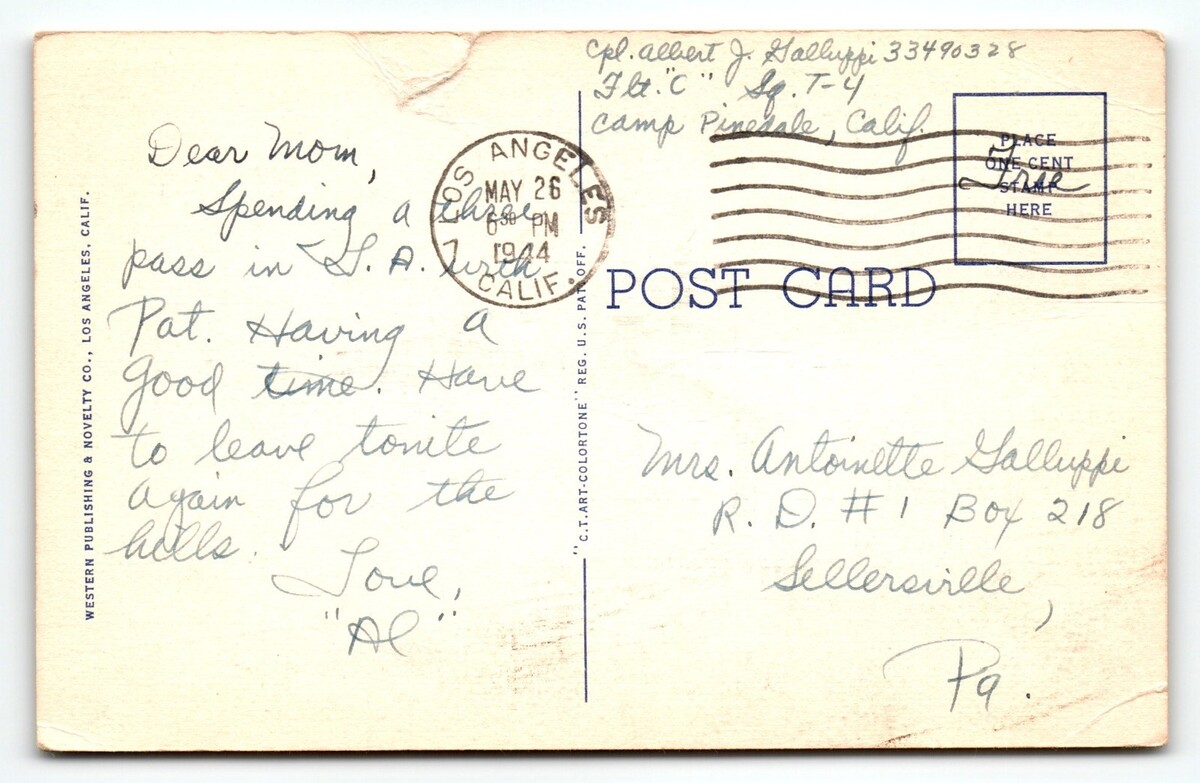 Cpl. Albert J. Galluppi 33490328
Flt. "C" Sq. T-4
Camp Pinedale, Calif.
PLACE
ONE CENT
STAMP
HERE
Free
LOS ANGELES
MAY 26
6 30 PM
1944
7 CALIF.
POST CARD
Dear Mom,
Spending a three
pass in L.A. with
Pat. Having a
good time. Have
to leave tonite
again for the
hills.
Love,
"Al"
Mrs. Antoinette Galluppi
R. D. #1 Box 218
Sellersville,
Pa.
WESTERN PUBLISHING & NOVELTY CO., LOS ANGELES, CALIF.
"C.T. ART-COLORTONE" REG. U.S. PAT. OFF.